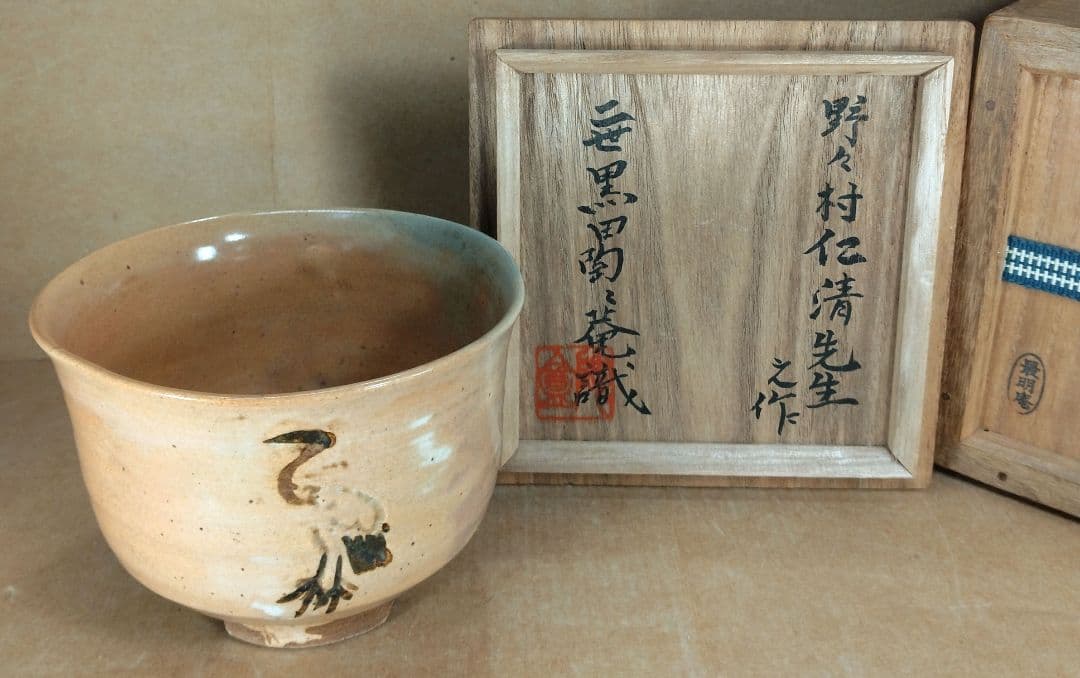 野々村仁清先生
之作
二世黒田陶々菴識
最明庵